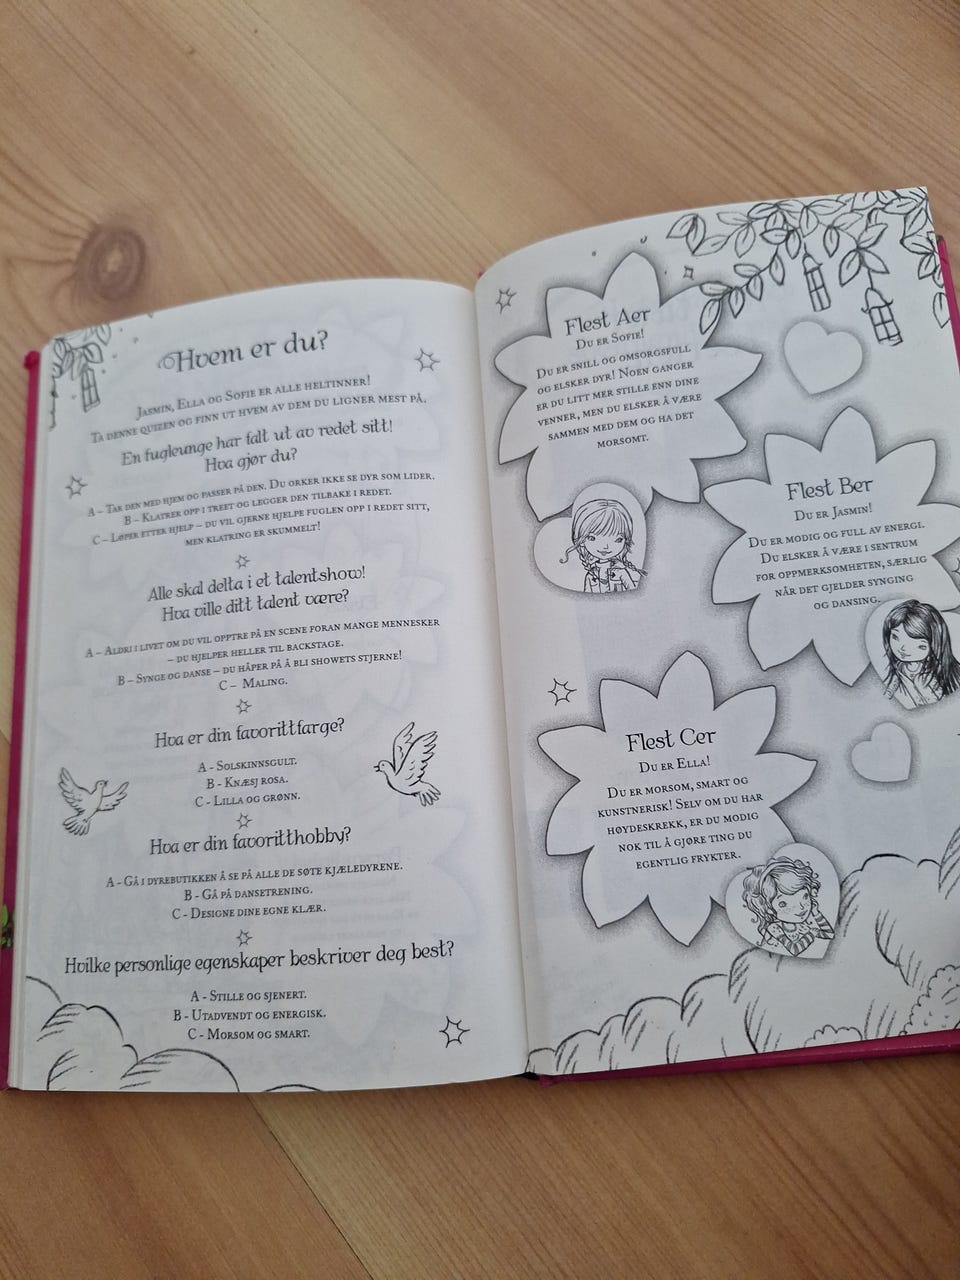 Hvem er du?
Jasmin, Ella og Sofie er alle heltinner!
Ta denne quizen og finn ut hvem av dem du ligner mest på.
En fugleunge har falt ut av redet sitt!
Hva gjør du?
A – Tar den med hjem og passer på den. Du orker ikke se dyr som lider.
B – Klatrer opp i treet og legger den tilbake i redet.
C – Løper etter hjelp – du vil gjerne hjelpe fuglen opp i redet sitt,
men klatring er skummelt!
Alle skal delta i et talentshow!
Hva ville ditt talent være?
A – Aldri i livet om du vil opptre på en scene foran mange mennesker
– du hjelper heller til backstage.
B – Synge og danse – du håper på å bli showets stjerne!
C – Maling.
Hva er din favorittfarge?
A - Solskinnsgult.
B - Knæsj rosa.
C - Lilla og grønn.
Hva er din favoritthobby?
A - Gå i dyrebutikken å se på alle de søte kjæledyrene.
B - Gå på dansetrening.
C - Designe dine egne klær.
Hvilke personlige egenskaper beskriver deg best?
A - Stille og sjenert.
B - Utadvendt og energisk.
C - Morsom og smart.
Flest Aer
Du er Sofie!
Du er snill og omsorgsfull
og elsker dyr! Noen ganger
er du litt mer stille enn dine
venner, men du elsker å være
sammen med dem og ha det
morsomt.
Flest Ber
Du er Jasmin!
Du er modig og full av energi.
Du elsker å være i sentrum
for oppmerksomheten, særlig
når det gjelder synging
og dansing.
Flest Cer
Du er Ella!
Du er morsom, smart og
kunstnerisk! Selv om du har
høydeskrekk, er du modig
nok til å gjøre ting du
egentlig frykter.